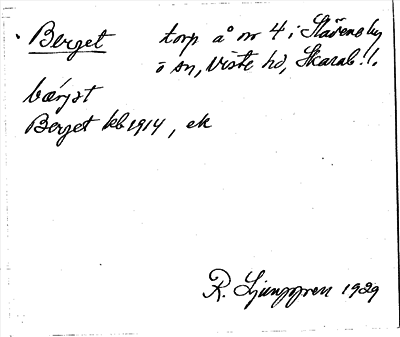 Berget torp å nr 4 i Stävensby
ö sn, Viste hd, Skarab. l.
bærjet
Berget kb 1914, ek
R. Ljunggren 1929